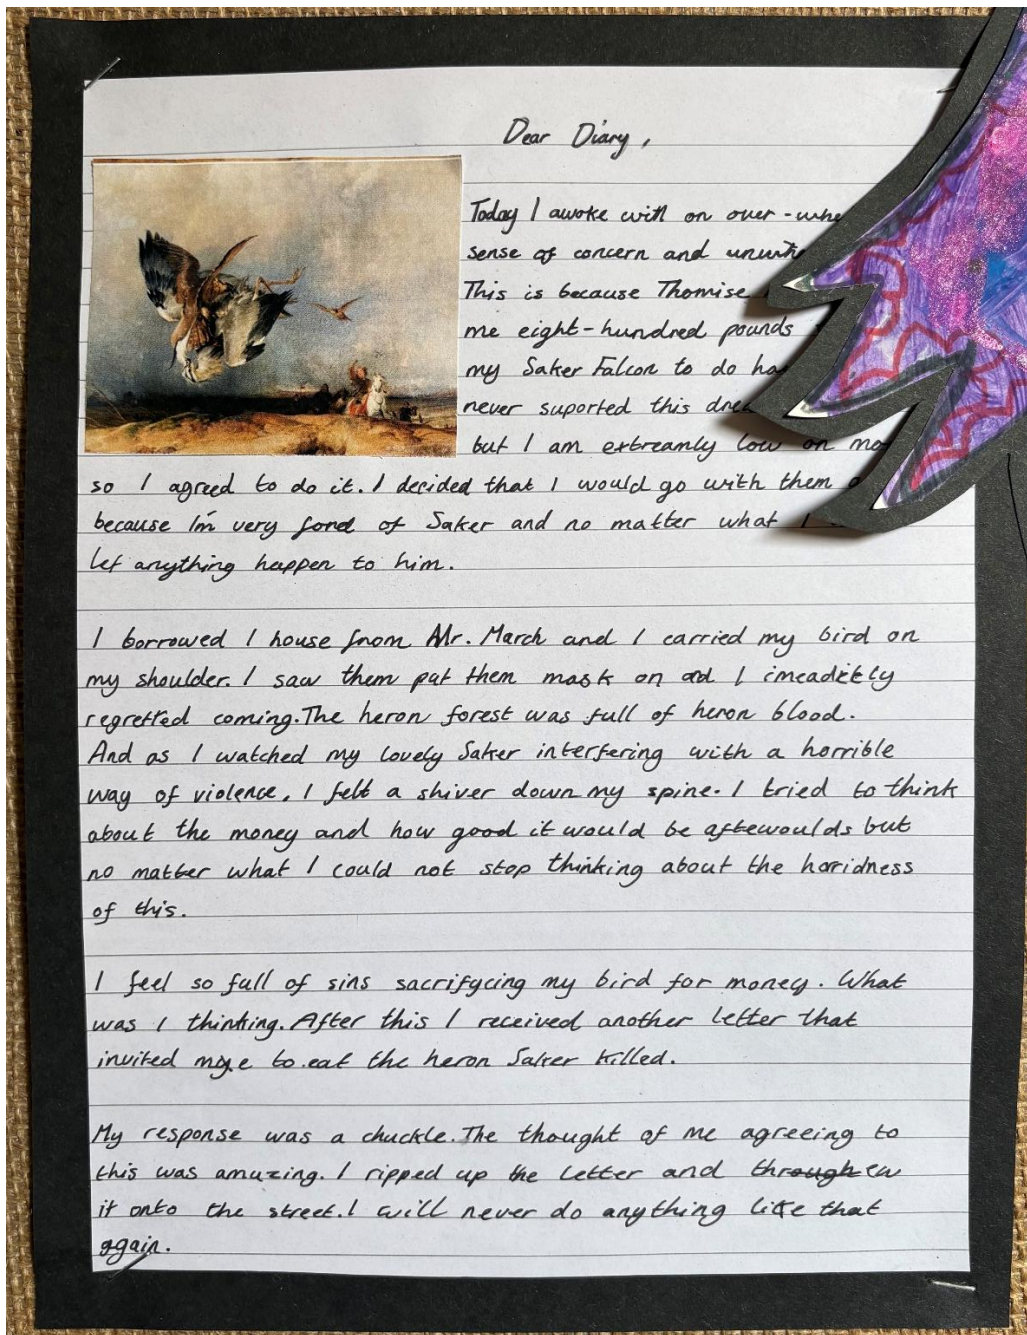 Dear Diary,
Today I awoke with on over-whe
sense of concern and
This is because Thomise
me eight-hundred pounds
my Saker Falcon to do ha
never suported this dre
but I am extreamly low on mo
so I agreed to do it. I decided that I would go with them
because I'm very fond of Saker and no matter what I
let anything happen to him.
I borrowed I house from Mr. March and I carried my bird on
my shoulder. I saw them put them mask on and I imeaditly
regretted coming. The heron forest was full of heron blood.
And as I watched my lovely Saker interfering with a horrible
way of violence, I felt a shiver down my spine. I tried to think
about the money and how good it would be aftewoulds but
no matter what I could not stop thinking about the horridness
of this.
I feel so full of sins sacrifycing my bird for money. What
was I thinking. After this I received another letter that
invited me to eat the heron Saker killed.
My response was a chuckle. The thought of me agreeing to
this was amuzing. I ripped up the letter and threw
it onto the street. I will never do anything like that
again.